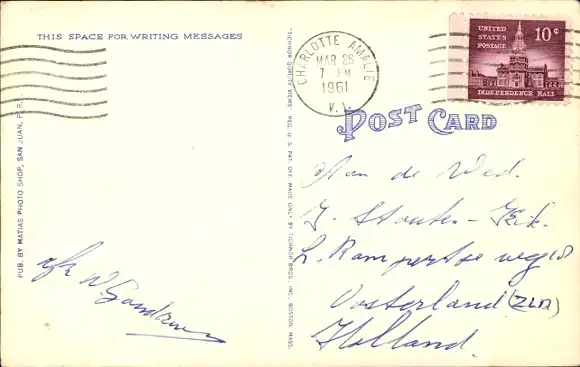 THIS SPACE FOR WRITING MESSAGES
CHARLOTTE AMALIE
MAR 25
7 PM
1961
V. I.
UNITED STATES POSTAGE
10¢
INDEPENDENCE HALL
POST CARD
PUB. BY MATIAS PHOTO SHOP, SAN JUAN, P.R.
"TICHNOR QUALITY VIEWS," REG. U. S. PAT. OFF. MADE ONLY BY TICHNOR BROS., INC., BOSTON, MASS.
Aan de Wed.
J. Stouten-Kik.
Oosterland (ZLD)
Holland.
afz W